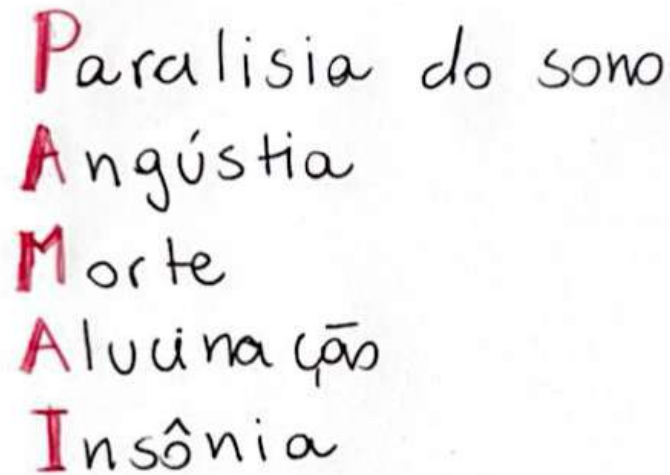 Paralisia do sono
Angústia
Morte
Alucinação
Insônia